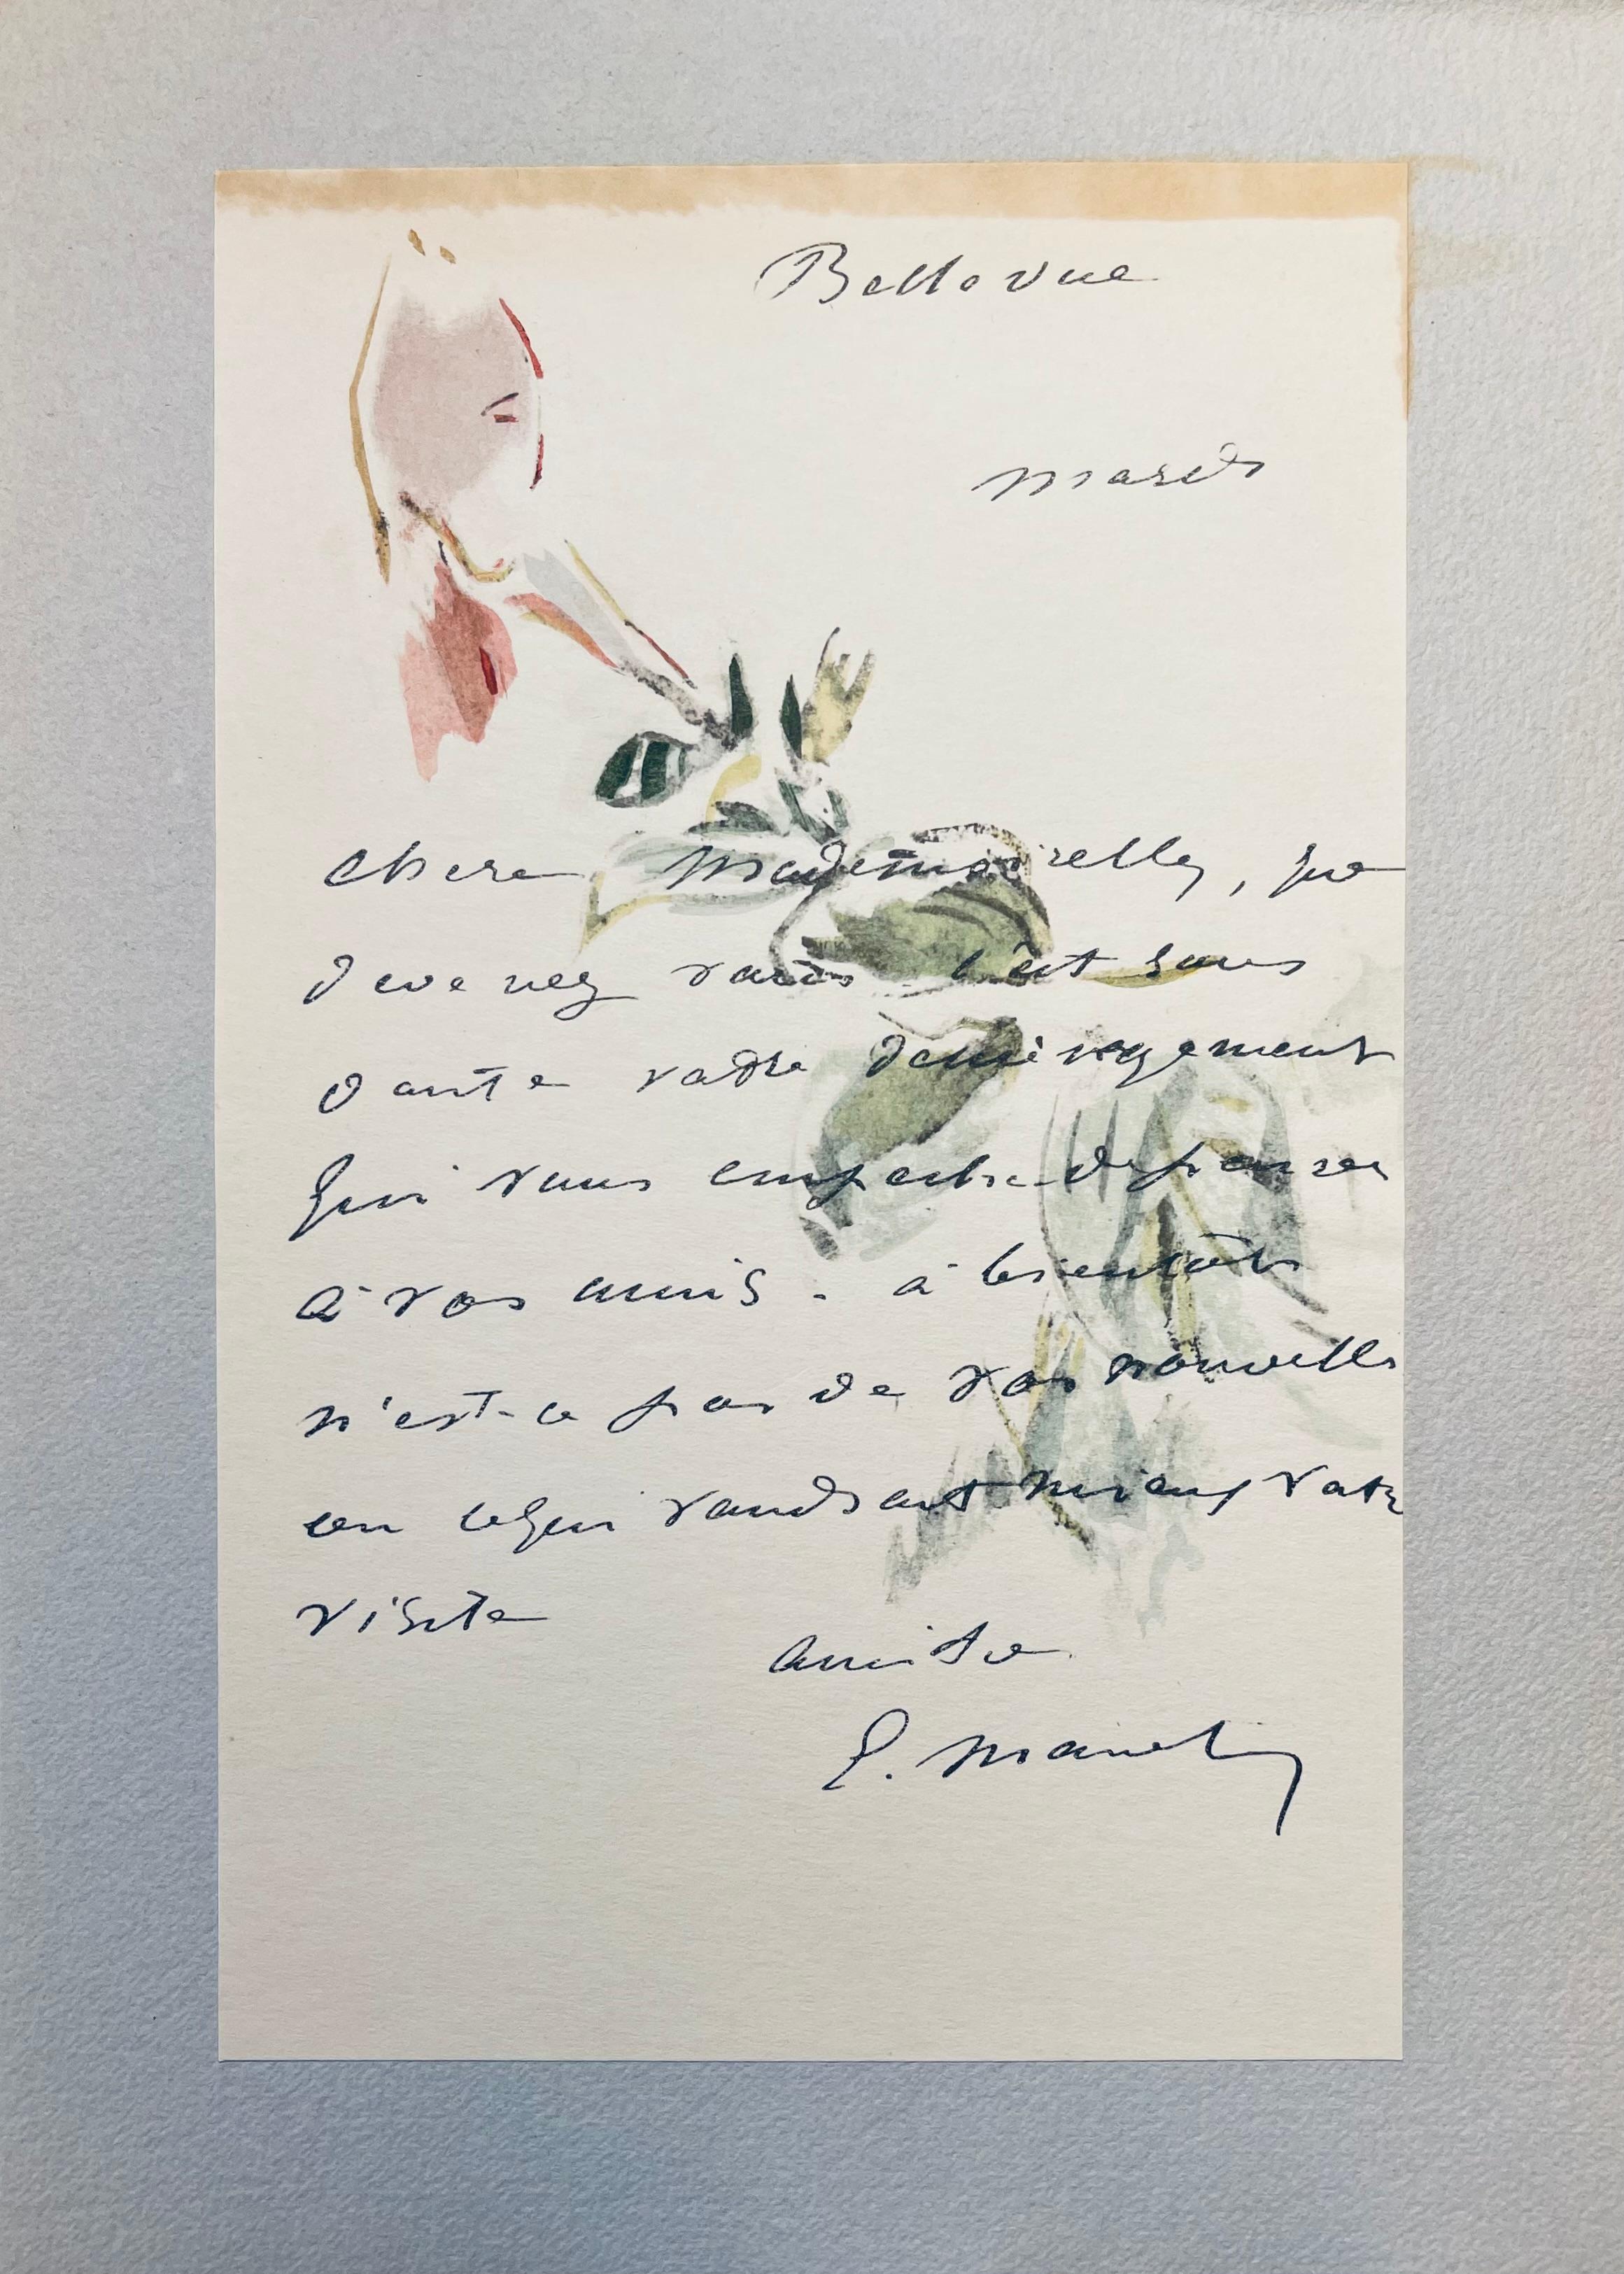 Bellevue
mardi
chère Mademoiselle, que
devenez vous c'est sans
doute votre déménagement
qui vous empeche de penser
à vos amis. à bientôt
n'est-ce pas de vos nouvelles
ou ce qui vaudrait mieux votre
visite
amitié
E. Manet